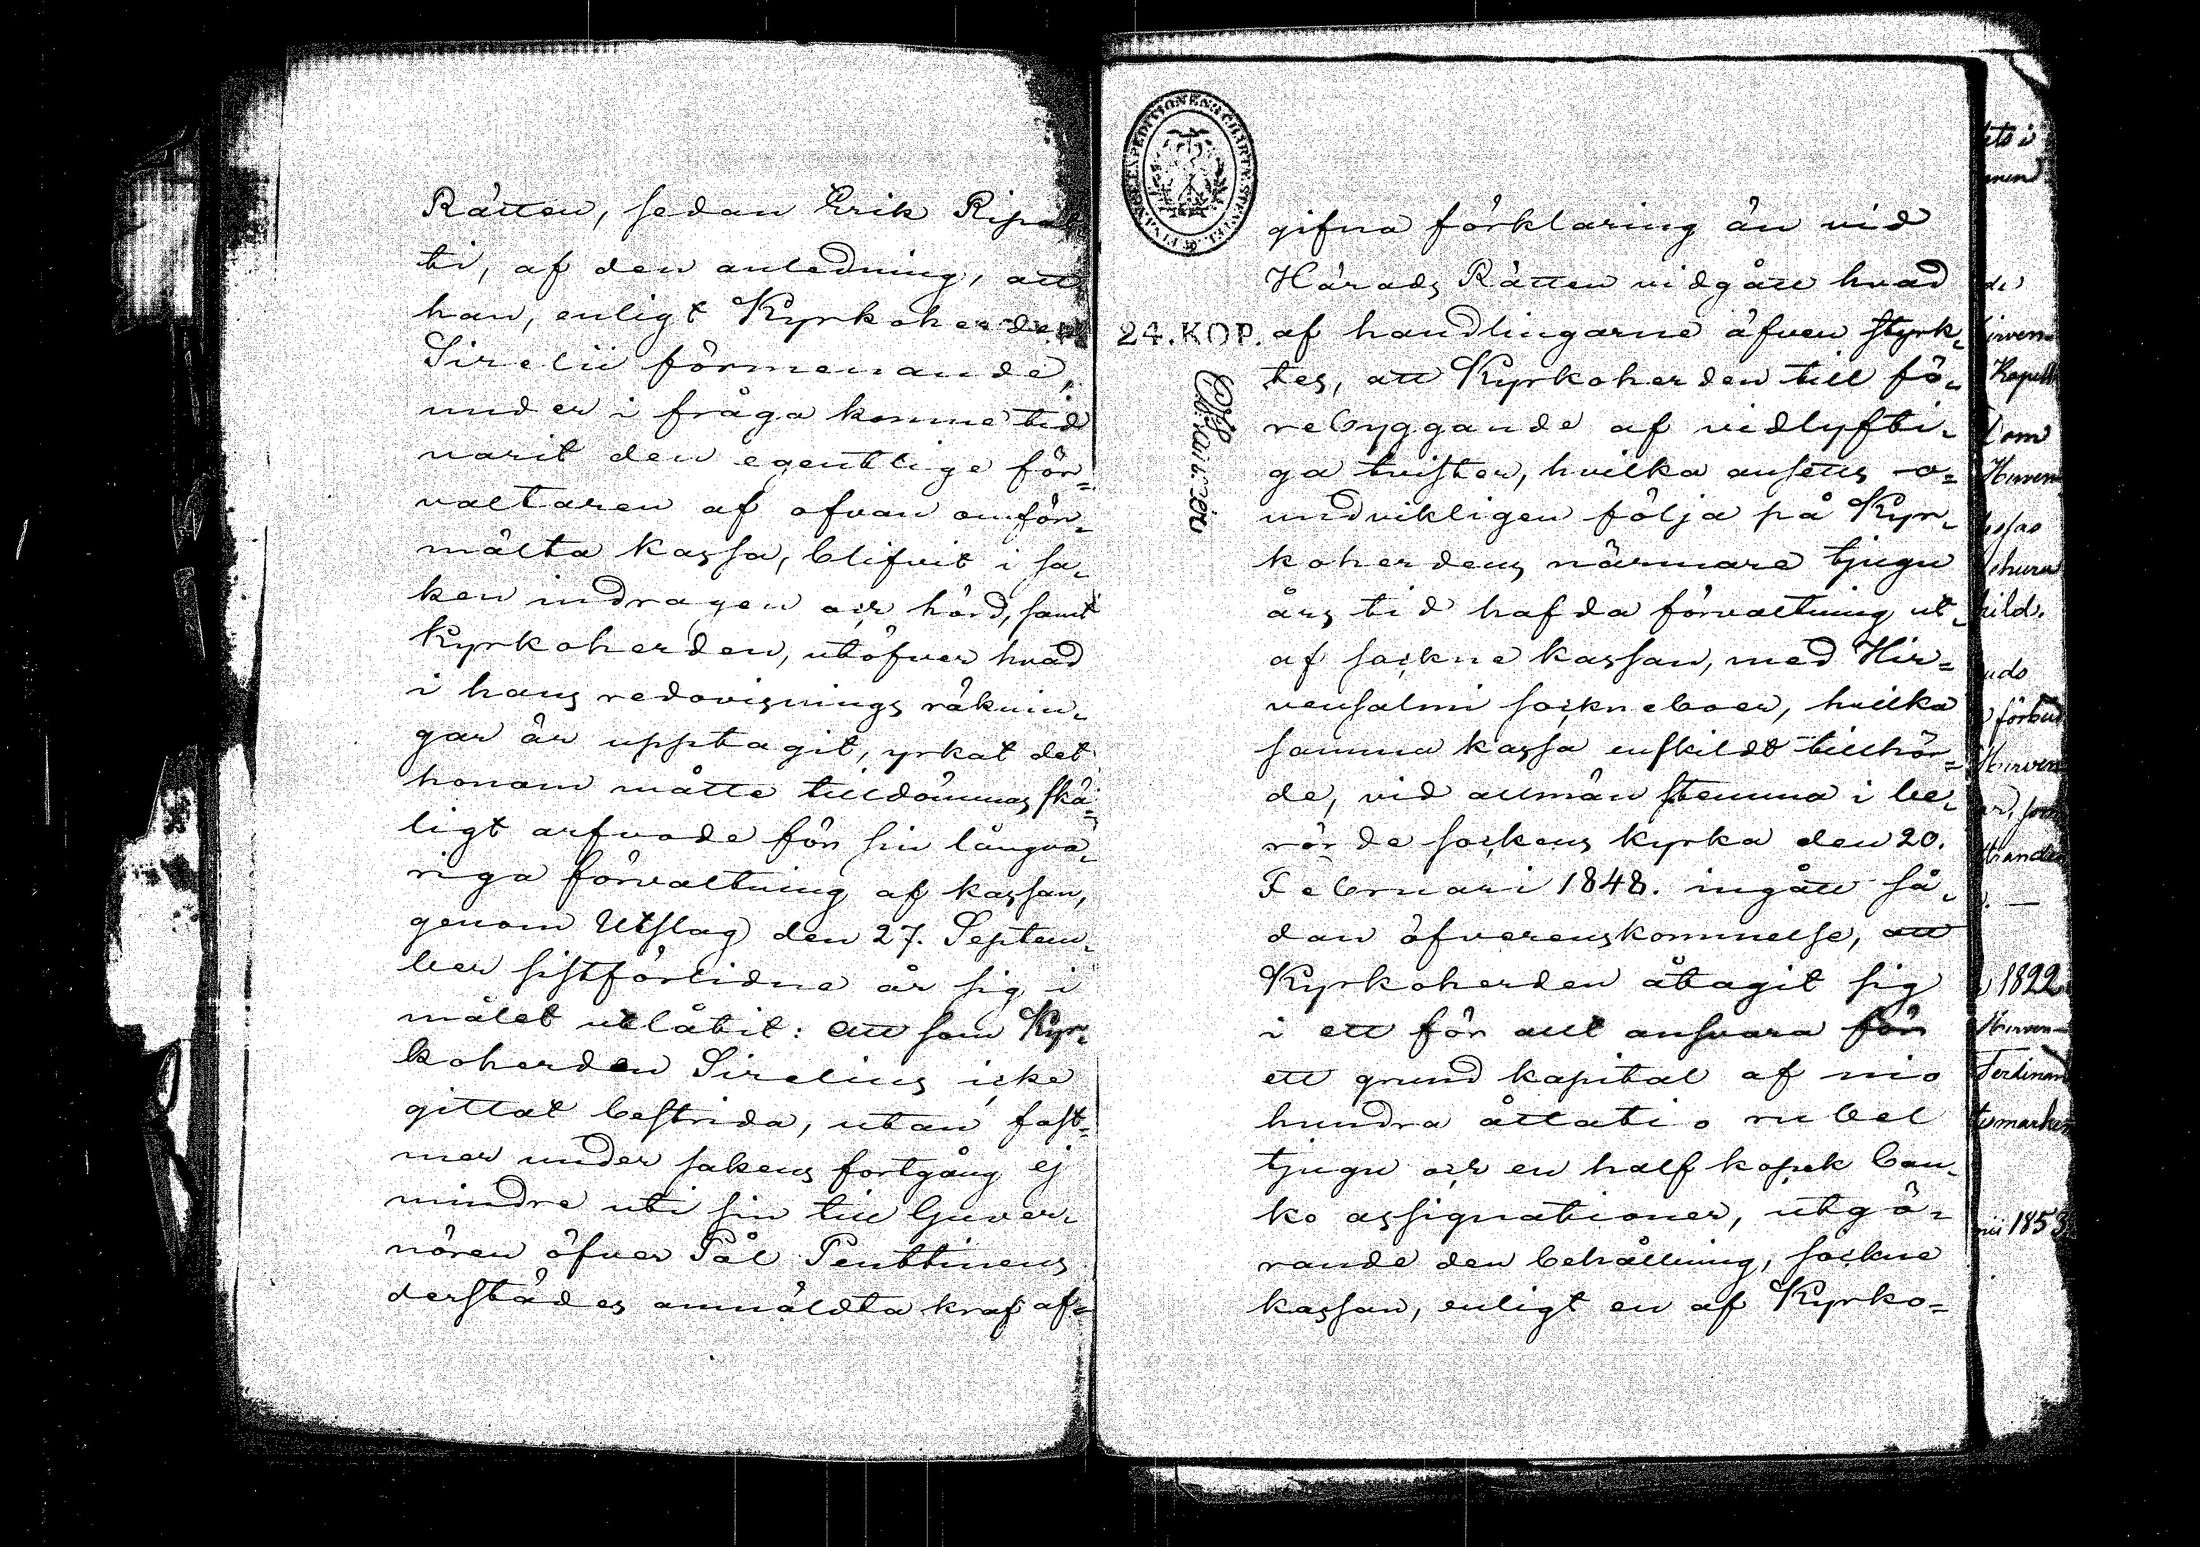 Rätten, sedan Erik
ti, af den anledning, att
han, enligt Kyrkoherden
Sirelii förmenande,
under i fråga komne tid
varit den egentlige för=
valtaren af ofvan omför=
mälta kassa, blifvit i sa=
ken indragen och hörd, samt
Kyrkoherden, utöfver hvad
i hans redovisnings räknin=
gar är upptagit, yrkat det
honom måtte tilldömmas skä=
ligt arfvode för sin långva=
riga förvaltning af kassan,
genom Utslag den 27. Septem=
ber sistförlidne år sig i
målet utlåtit: att som Kyr=
koherden Sirelius icke
gittat bestrida, utan fast=
mer under sakens fortgång ej
mindre uti sin till Guver=
nören öfver Pål Penttinens
derstädes anmäldta kraf af=
FINLANDS EXPEDITIONEN
24. KOP.
gifna förklaring än vid
Härads Rätten vidgått hvad
af handlingarne äfven styrk=
tes, att Kyrkoherden till fö=
rebyggande af vidlyfti=
ga tvister, hvilka ansetts o=
undvikligen följa på Kyr=
koherdens närmare tjugu
års tid hafda förvaltning ut=
af sockne kassan, med Hir=
vensalmi sockneboer, hvilka
samma kassa enskildt tillhör=
de, vid allmän stemma i be=
rörde sockens kyrka den 20.
Februari 1848. ingått så=
dan öfverenskommelse, att
Kyrkoherden åtagit sig
i ett för allt ansvara för
ett grund kapital af nio
hundra åttatio rubel
tjugu och en half kopek ban=
ko assignationer, utgö=
rande den behållning, sockne
kassan, enligt en af Kyrko=
Kapell
förbud
1822
Ferdinand
1853